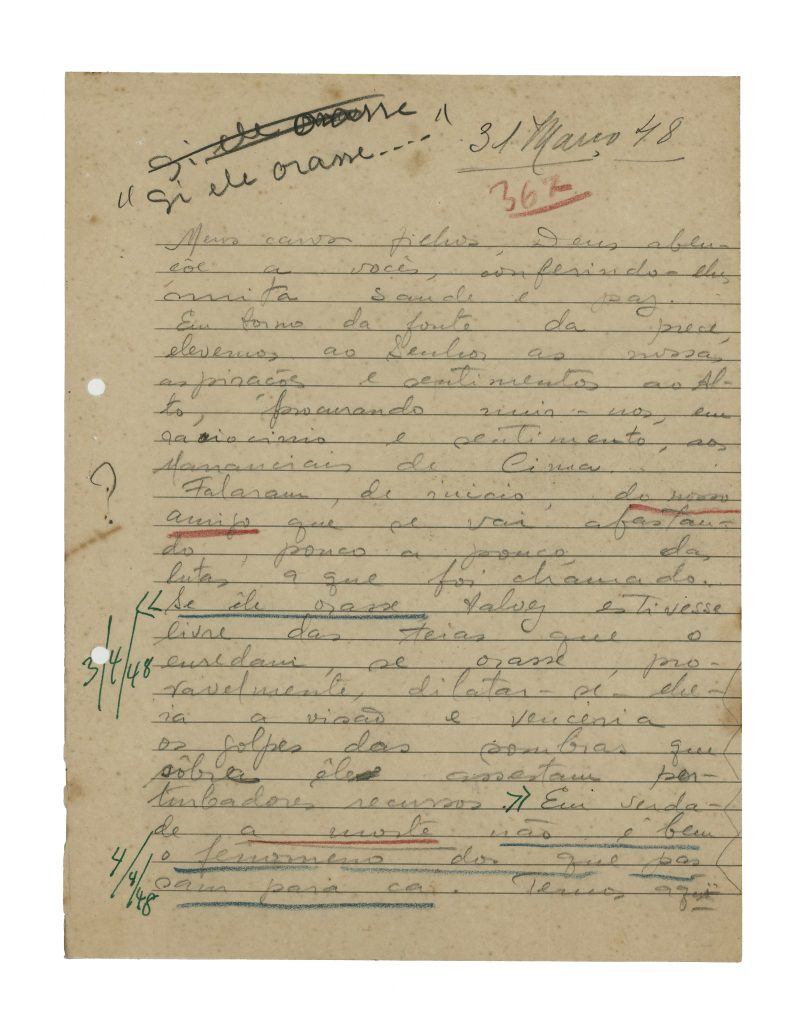 Si ele orasse
"Si ele orasse...."
31 Março 48
367
Meus caros filhos, Deus aben-
çôe a vocês, conferindo-lhes
muita saude e paz.
Em torno da fonte da prece,
elevemos ao Senhor as nossas
aspirações e sentimentos ao Al-
to, procurando unir-nos, em
raciocinio e sentimento, aos
Mananciais de Cima.
Falaram, de inicio, do nosso
amigo que se vai afastan-
do, pouco a pouco, das
lutas a que foi chamado.
? 
<< Se êle orasse talvez estivesse
livre das teias que o
enredam, se orasse, pro-
3/4/48
vavelmente, dilatar-se-lhe-
ia a visão e venceria
os golpes das sombras que
sôbre êle assestam per-
turbadores recursos. >> Em verda-
de a morte não é bem
4/4/48
o fenomeno dos que pas
sam para cá. Temos aqui